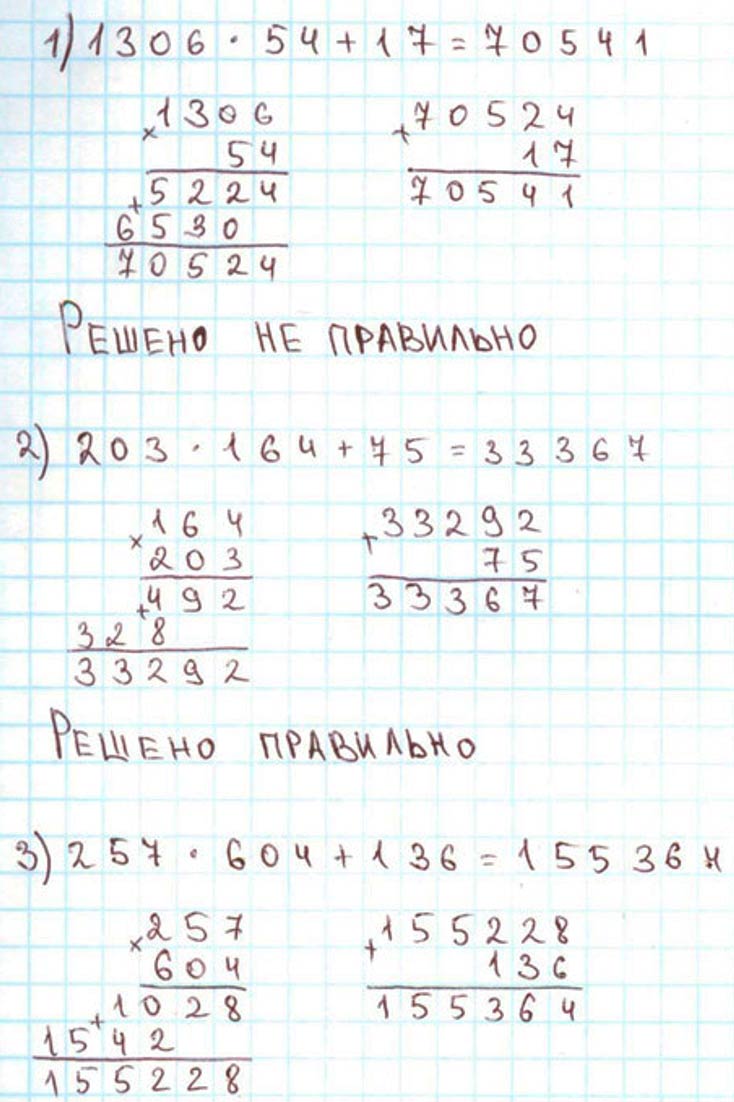 1) 1306 · 54 + 17 = 70541
× 1306
54
+ 5224
6530
70524
+ 70524
17
70541
РЕШЕНО НЕ ПРАВИЛЬНО
2) 203 · 164 + 75 = 33367
× 164
203
+ 492
328
33292
+ 33292
75
33367
РЕШЕНО ПРАВИЛЬНО
3) 257 · 604 + 136 = 155364
× 257
604
+ 1028
1542
155228
+ 155228
136
155364